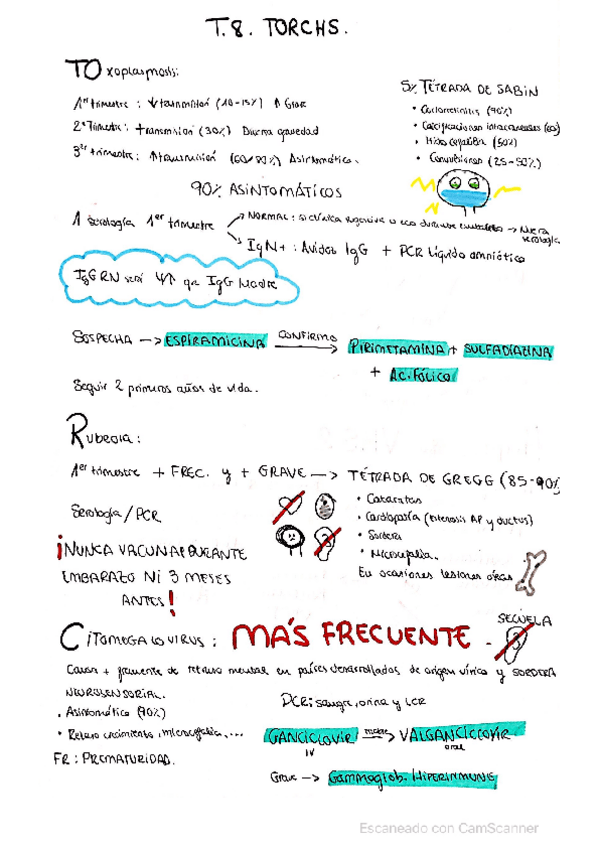 T.8. TORCHS.
TOxoplasmosis:
1er trimestre: ↓ transmisión (10-15%) ↑ Grave
2º Trimestre: transmisión (30%) Diversa gravedad
3er trimestre: ↑ transmisión (60/90%) Asintomático.
5% TÉTRADA DE SABIN
• Coriorretinitis (90%)
• Calcificaciones intracraneales
• Hidrocefalia (50%)
• Convulsiones (25-50%)
90% ASINTOMÁTICOS
1 serología 1er trimestre
NORMAL: si clínica sugestiva o eco durante → Nueva serología
IgM+: Avidez IgG + PCR líquido amniótico
IgG RN será que IgG Madre
SOSPECHA → ESPIRAMICINA CONFIRMO → PIRIMETAMINA + SULFADIAZINA
+ Ac. Fólico
Seguir 2 primeros años de vida.
Rubeola:
1er trimestre + FREC. y + GRAVE → TÉTRADA DE GREGG (85-90%)
• Cataratas
• Cardiopatía (estenosis AP y ductus)
• Sordera
• Microcefalia.
En ocasiones lesiones óseas
Serología/PCR
¡NUNCA VACUNAR DURANTE
EMBARAZO NI 3 MESES
ANTES!
CITOMEGALOVIRUS: MÁS FRECUENTE - SECUELA
Causa + frecuente de retraso mental en países desarrollados de origen vírico y SORDERA
NEUROSENSORIAL.
• Asintomático (90%)
• Retraso crecimiento, microcefalia,...
FR: PREMATURIDAD.
PCR: sangre, orina y LCR
GANCICLOVIR → VALGANCICLOVIR
IV
oral
Grave → Gammaglob. HIPERINMUNE
Escaneado con CamScanner